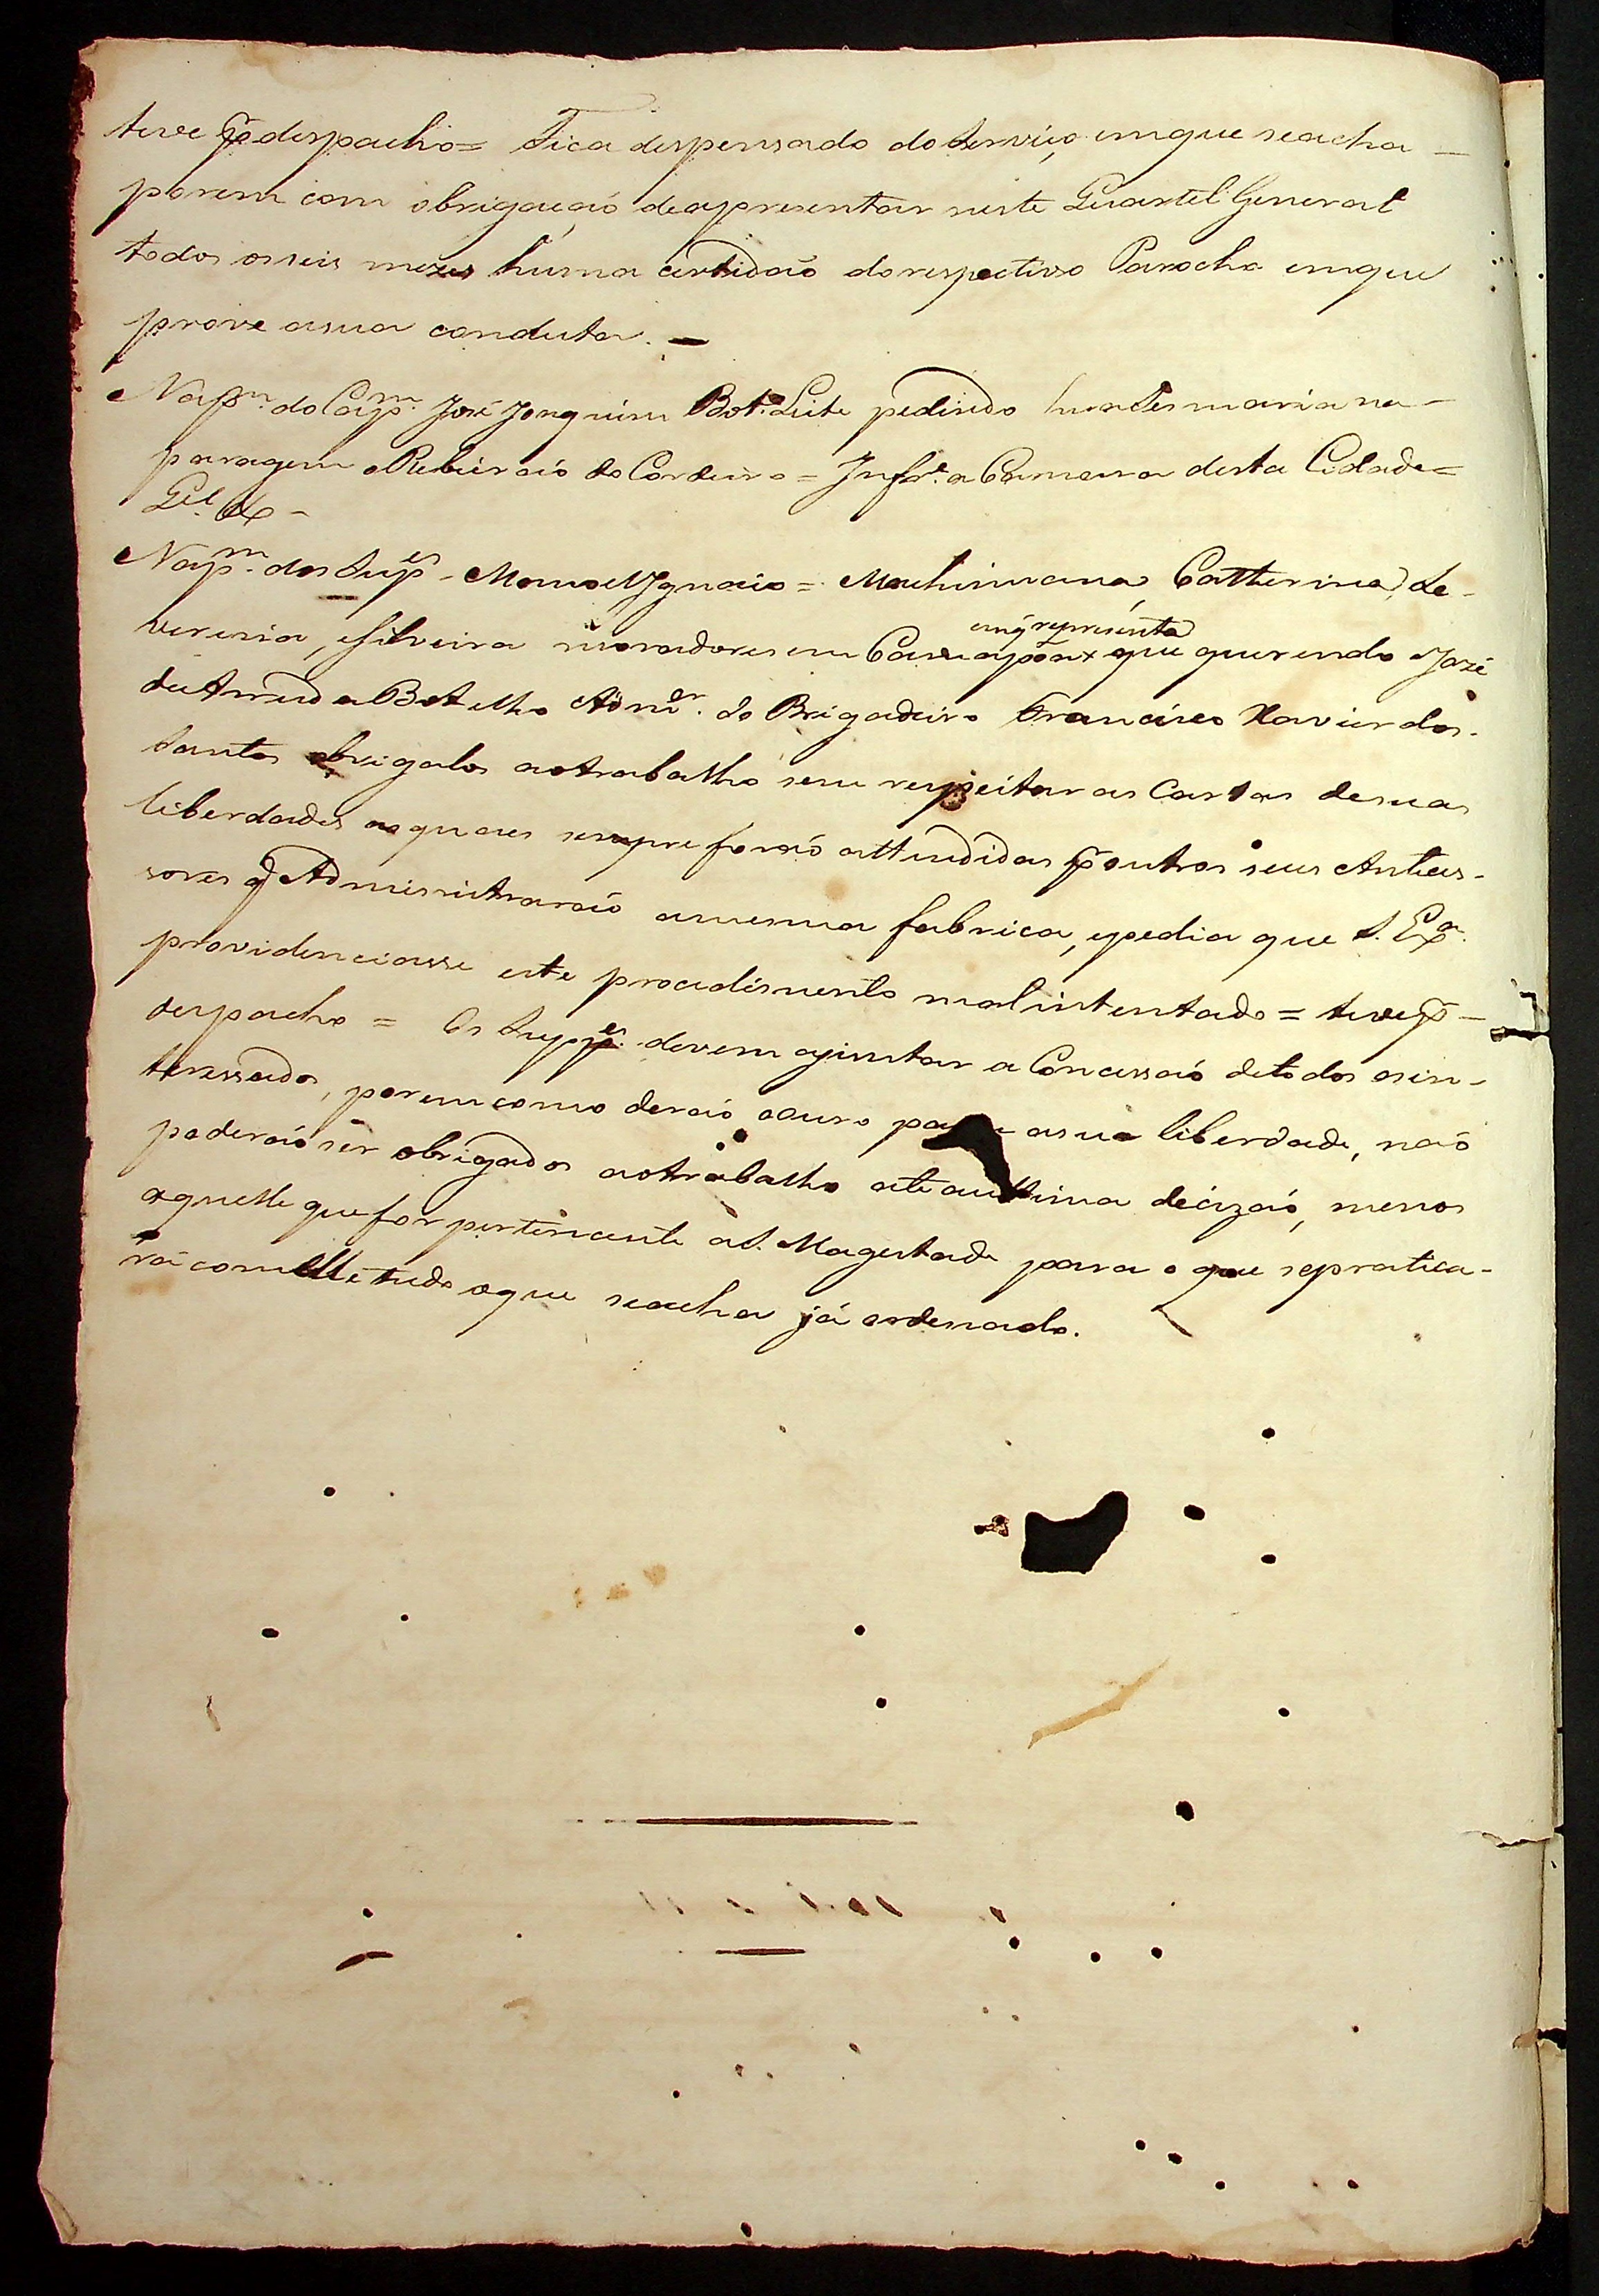 teve p despacho = Fica despensado do serviço emque seacha —
porem com obrigaçaõ deapresentar neste Quartel General
todos osseis mezes huma certidaõ dorespectivo Parocho emque
prove asua conduta. —
Napm. do Capm. José Joaquim Bot.º Leite pedindo huaSesmaria na —
paragem oRibeiraõ do Cordeiro = Infr.e a Camara desta Cidade =
Napm. dos Supes. Manoel Ignacio = Maximiana, Catherina, Se-
verina, eSilveira moradores em Camapoax que querendo José
emq̃ representa
deArruda Botelho Admor. do Brigadeiro Francisco Xavier dos-
Santos obrigalos aotrabalho sem respeitar as Cartas desuas
liberdades as quaes sempre foraõ attendidas p outros seus Antes-
sores q̃ Administraraõ amesma fabrica, epedia que S. Exa.
providenciasse este procedimento malintentado = teve p —
despacho = Os Suppes. devem ajuntar a Concessaõ detodos osin-
teressados, porem como deraõ oouro pa asua liberdade, naõ
poderaõ ser obrigados aotrabalho ateaultima decizaõ, menos
aquelle que for pertencente aS. Magestade para o que sepratica-
rá comelle tudo oque seacha já ordenado.